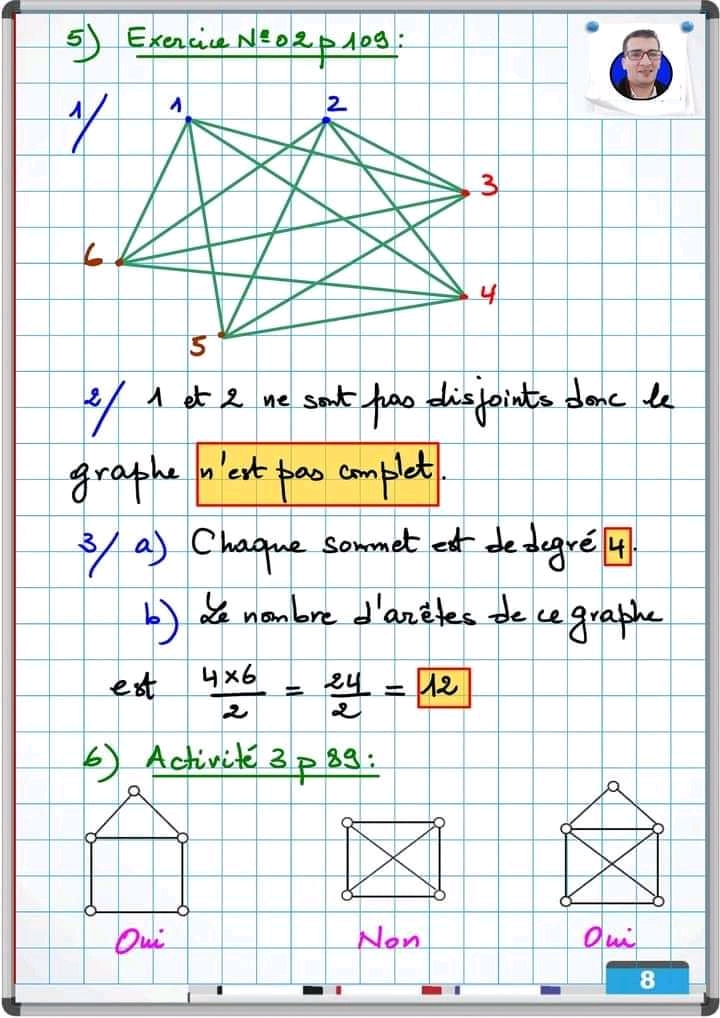 5) Exercice N°02 p 109 :
1/
1
2
3
6
4
5
2/ 1 et 2 ne sont pas disjoints donc le
graphe n'est pas complet.
3/ a) Chaque sommet est de degré 4.
b) Le nombre d'arêtes de ce graphe
est 4×6/2 = 24/2 = 12
6) Activité 3 p 89 :
Oui Non Oui
8